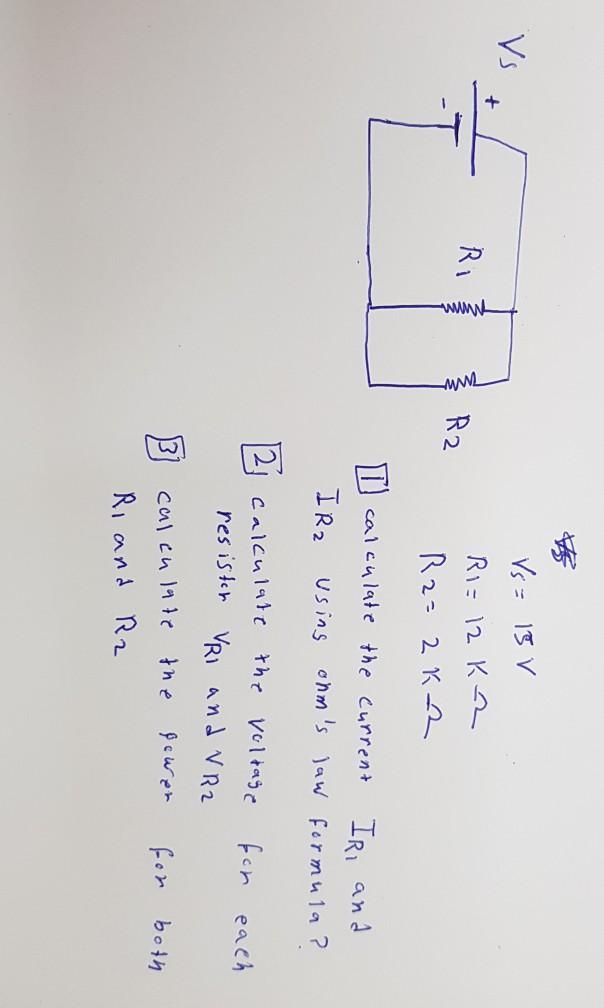 Vs
+
-
R1
R2
Vs = 15 V
R1 = 12 KΩ
R2 = 2 KΩ
1 calculate the current IR1 and
IR2 using ohm's law formula?
2 calculate the voltage for each
resistor VR1 and VR2
3 calculate the power for both
R1 and R2